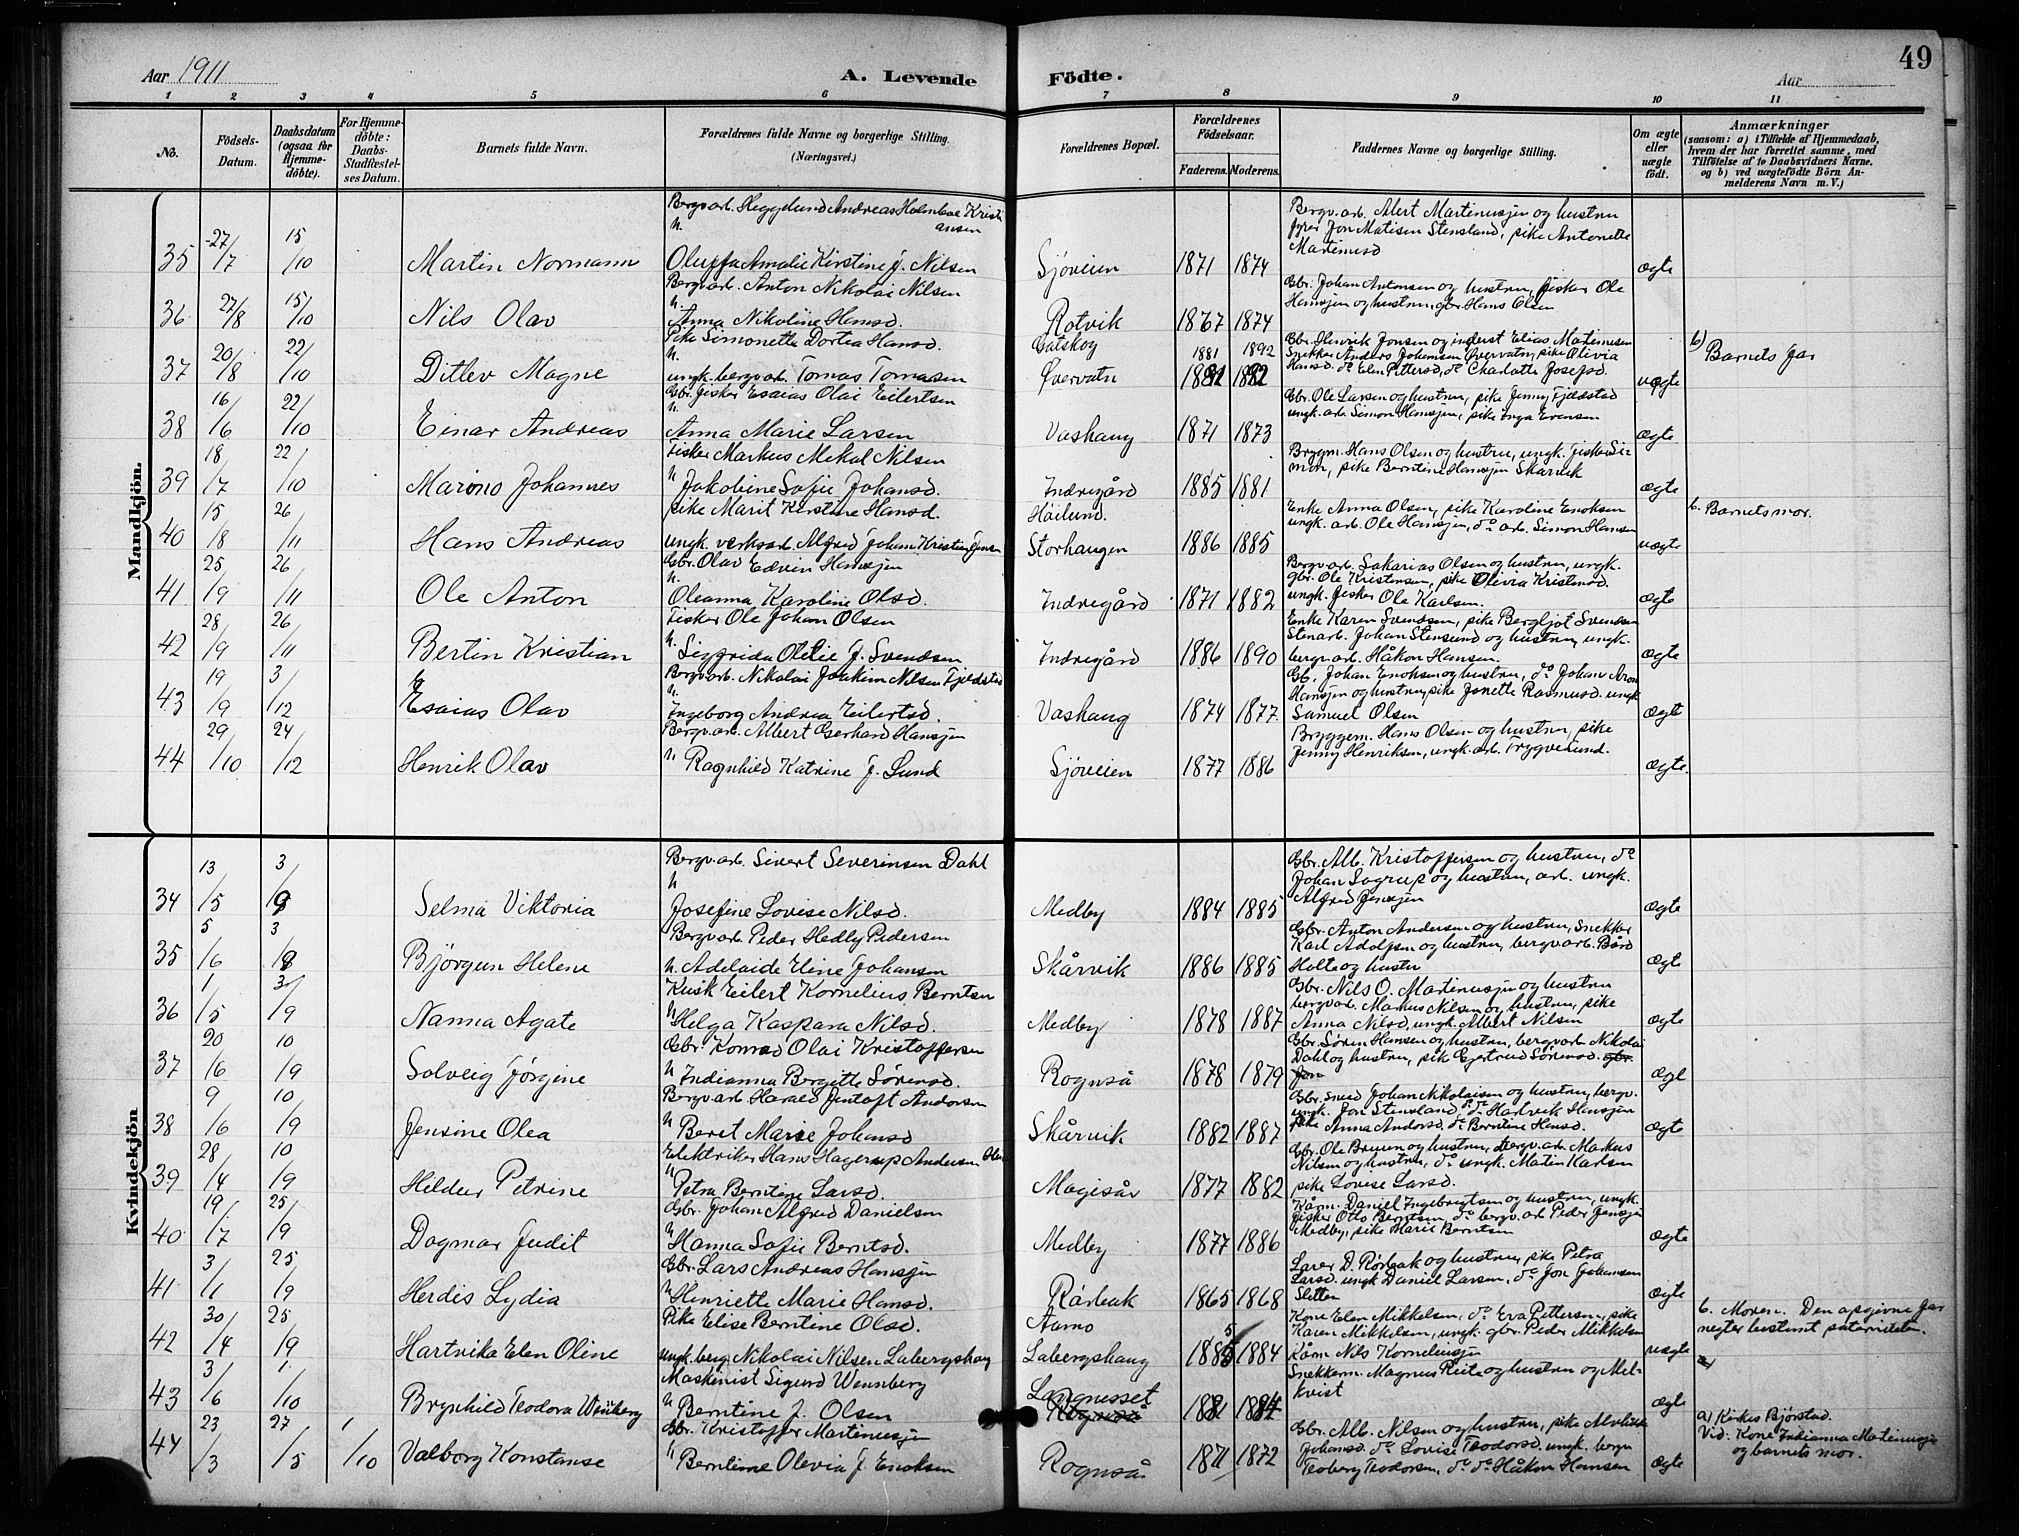 49
Aar 1911
A. Levende Födte.
Aar
1 2 3 4 5 6 7 8 9 10 11
No.
Födsels-Datum.
Daabsdatum (ogsaa for Hjemmedöbte).
For Hjemmedöbte: Daabs-Stadfæstelses Datum.
Barnets fulde Navn.
Forældrenes fulde Navne og borgerlige Stilling. (Næringsvei.)
Forældrenes Bopæl.
Forældrenes Födselsaar.
Faderens. Moderens.
Faddernes Navne og borgerlige Stilling.
Om ægte eller uægte födt.
Anmærkninger
(saasom: a) i Tilfælde af Hjemmedaab, hvem der har forrettet samme, med Tilföielse af to Daabsvidners Navne. og b) ved uægtefödte Börn Anmelderens Navn m. V.)
Mandkjön.
35 27/7 15/10 Martin Normann
Bergv.arb. Heggelund Andreas Holmboe Kristiansen
h. Oluffa Amalie Kirstine J. Nilsen
Sjöveien 1871 1874
Bergv.arb. Albert Martinussen og hustru
Jon Matisen Stensland, pike Antonette
Martinusd
ægte
36 27/8 15/10 Nils Olav
Bergv.arb. Anton Nikolai Nilsen
h. Anna Nikoline Hansd.
Rotvik 1867 1874
Gbr. Johan Antonsen og hustru, fisker Ole
Hanssen og hustru, gbr. Hans Olsen
ægte
37 20/8 22/10 Ditlev Magne
Pike Simonette Dortea Hansd.
ungk. bergv.arb. Tomas Tomassen
Øvervatn 1881 1892
Gbr. Henrik Jonsen og inderst Elias Martinussen
Snekker Anders Johansen Øvervatn, pike Olivia
Hansd. do Elen Pettersd, do Charlotte Josefsd.
uægte
b) Barnets far
38 16/6 22/10 Einar Andreas
Gbr. fisker Esaias Olai Eilertsen
h. Anna Marie Larsen
Vashaug 1871 1873
Gbr. Ole Larsen og hustru, pike Jenny Fjeldstad
ungk. arb. Simon Hanssen, pike Inga Evensen
ægte
39 18/7 22/10 Marino Johannes
Fisker Markus Mekal Nilsen
h. Jakobine Sofie Johansd.
Indregård 1885 1881
Bryggm. Hans Olsen og hustru, ungk. fisker Simon, pike Berntine Hanssen Skårvik
ægte
40 15/8 26/11 Hans Andreas
pike Marit Kirstine Hansd.
ungk. verksarb. Alfred Johan Kristian Jensen
Höilund.
Storhaugen 1886 1885
Enke Anna Olsen, pike Karoline Enoksen
ungk. arb. Ole Hanssen, do arb. Simon Hansen
uægte
b. Barnets mor.
41 25/9 26/11 Ole Anton
Gbr. Olav Edvin Hanssen
h. Oleanna Karoline Olsd.
Indregård 1871 1882
Bergv.arb. Sakarias Olsen og hustru, ungk.
gbr. Ole Kristensen, pike Olivia Kristensd.
ungk. fisker Ole Karlsen.
ægte
42 28/9 26/11 Bertin Kristian
Fisker Ole Johan Olsen
h. Sigfrida Otelie J. Svendsen
Indregård 1886 1890
Enke Karen Svendsen, pike Bergljot Svendsen
Stenarb. Johan Stensund og hustru, ungk.
bergv.arb. Håkon Hansen.
ægte
43 19/9 3/12 Esaias Olav
Bergv.arb. Nikolai Joakim Nilsen Fjeldstad
h. Ingeborg Andrea Eilertsd.
Vashaug 1874 1877
Gb. Johan Enoksen og hustru, do Johan Aron
Hanssen og hustru, pike Janette Rasmusd. ungk
Samuel Olsen
ægte
44 29/10 24/12 Henrik Olav
Bergv.arb. Albert Gerhard Hanssen
h. Ragnhild Katrine J. Lund
Sjöveien 1877 1886
Bryggem. Hans Olsen og hustru, pike
Jenny Henriksen, ungk. arb. Trygve Lund.
ægte.
Kvindekjön
34 13/5 3/9 Selma Viktoria
Bergv.arb. Sivert Severinsen Dahl
h. Josefine Lovise Nilsd.
Medby 1884 1885
Gbr. Alb. Kristoffersen og hustru, do
Johan Sagrup og hustru, arb. ungk.
Alfred Jenssen
ægte
35 5/6 3/9 Björgun Helene
Bergv.arb. Peder Hedly Pedersen
h. Adelaide Eline Johansen
Skårvik 1886 1885
Gbr. Anton Andersen og hustru, Snekker
Karl Adolfsen og hustru, bergv.arb. Bård
Holte og hustru
ægte
36 1/5 3/9 Nanna Agate
Kusk Eilert Kornelius Berntsen
h. Helga Kaspara Nilsd.
Medby 1878 1887
Gbr. Nils O. Martinussen og hustru
bergv.arb. Markus Nilsen og hustru, pike
Anna Nilsd, ungk. Albert Nilsen
ægte
37 20/6 10/9 Solveig Jørgine
Gbr. Konrad Olai Kristoffersen
h. Indianna Bergitte Sørensd.
Rognså 1878 1879
Gbr. Søren Hansen og hustru, bergv.arb. Nikolai
Dahl og hustru, pike Gjertrud Sørensd. gbr.
Jon
ægte
38 9/6 10/9 Jensine Olea
Bergv.arb. Harald Jentoft Andersen
h. Beret Marie Johansd
Skårvik 1882 1887
Gbr. Smed Johan Nikolaisen og hustru, bergv.
ungk. Jon Stensland, do Hartvik Hanssen
pike Anna Andersd. do Berntine Hansd.
ægte
39 28/4 10/9 Heldur Petrine
Elektriker Hans Hagerup Andersen
h. Petra Berntine Larsd.
Magisår 1877 1882
Gbr. Ole Bruun og hustru, bergv.arb. Markus
Nilsen og hustru, do ungk. Matin Karlsen
pike Lovise Larsd.
40 19/7 25/9 Dagmar Judit
Gbr. Johan Alfred Danielsen
h. Hanna Sofie Berntsd.
Medby 1877 1886
Kårm. Daniel Ingebrigtsen og hustru, ungk.
fisker Otto Berntsen, do bergv. arb Peder Jenssen
Medby, pike Marie Berntsen
ægte
41 3/1 25/9 Herdis Lydia
Gbr. Lars Andreas Hanssen
h. Henriette Marie Hansd.
Rörbak 1865 1868
Lærer D. Rørbak og hustru, pike Petra
Larsd. ungk Daniel Larsen, do Jon Johansen
Sletten
ægte
42 30/4 25/9 Hartvika Elen Oline
Pike Elise Berntine Olsd.
ungk. berg. Nikolai Nilsen Labergshaug
Aamo
Labergshaug 1885 1884
Kone Elen Mikkelsen, do Eva Pettersen, pike
Karen Mikkelsen, ungk. gbr. Peder Mikkelsen
Kårm Nils Korneliussen
uægte
b. Moren. Den opgivne far
negter bestemt paterniteten.
43 3/6 1/10 Brynhild Teodora Wennberg
Maskinist Sigurd Wennberg
h. Berntine J. Olsen
Langnesset
Rognså 1881 1884
Snekkerm. Magnus Reite og hustru og Melkvist
ægte
44 23/3 27/5 1/10 Valborg Konstanse
Gbr. Kristoffer Martinussen
h. Berntine Olevia J. Enoksen
Rognså 1871 1872
Gbr. Alb. Nilsen og hustru, pike
Johansd. do Lovise Teodorsd, ungk. bergv
Teoberg Teodorsen, do do Håkon Hansen
ægte
a) Kirkes. Bjørstad.
Vid. Kone Indianna Martinussen
og barnets mor.